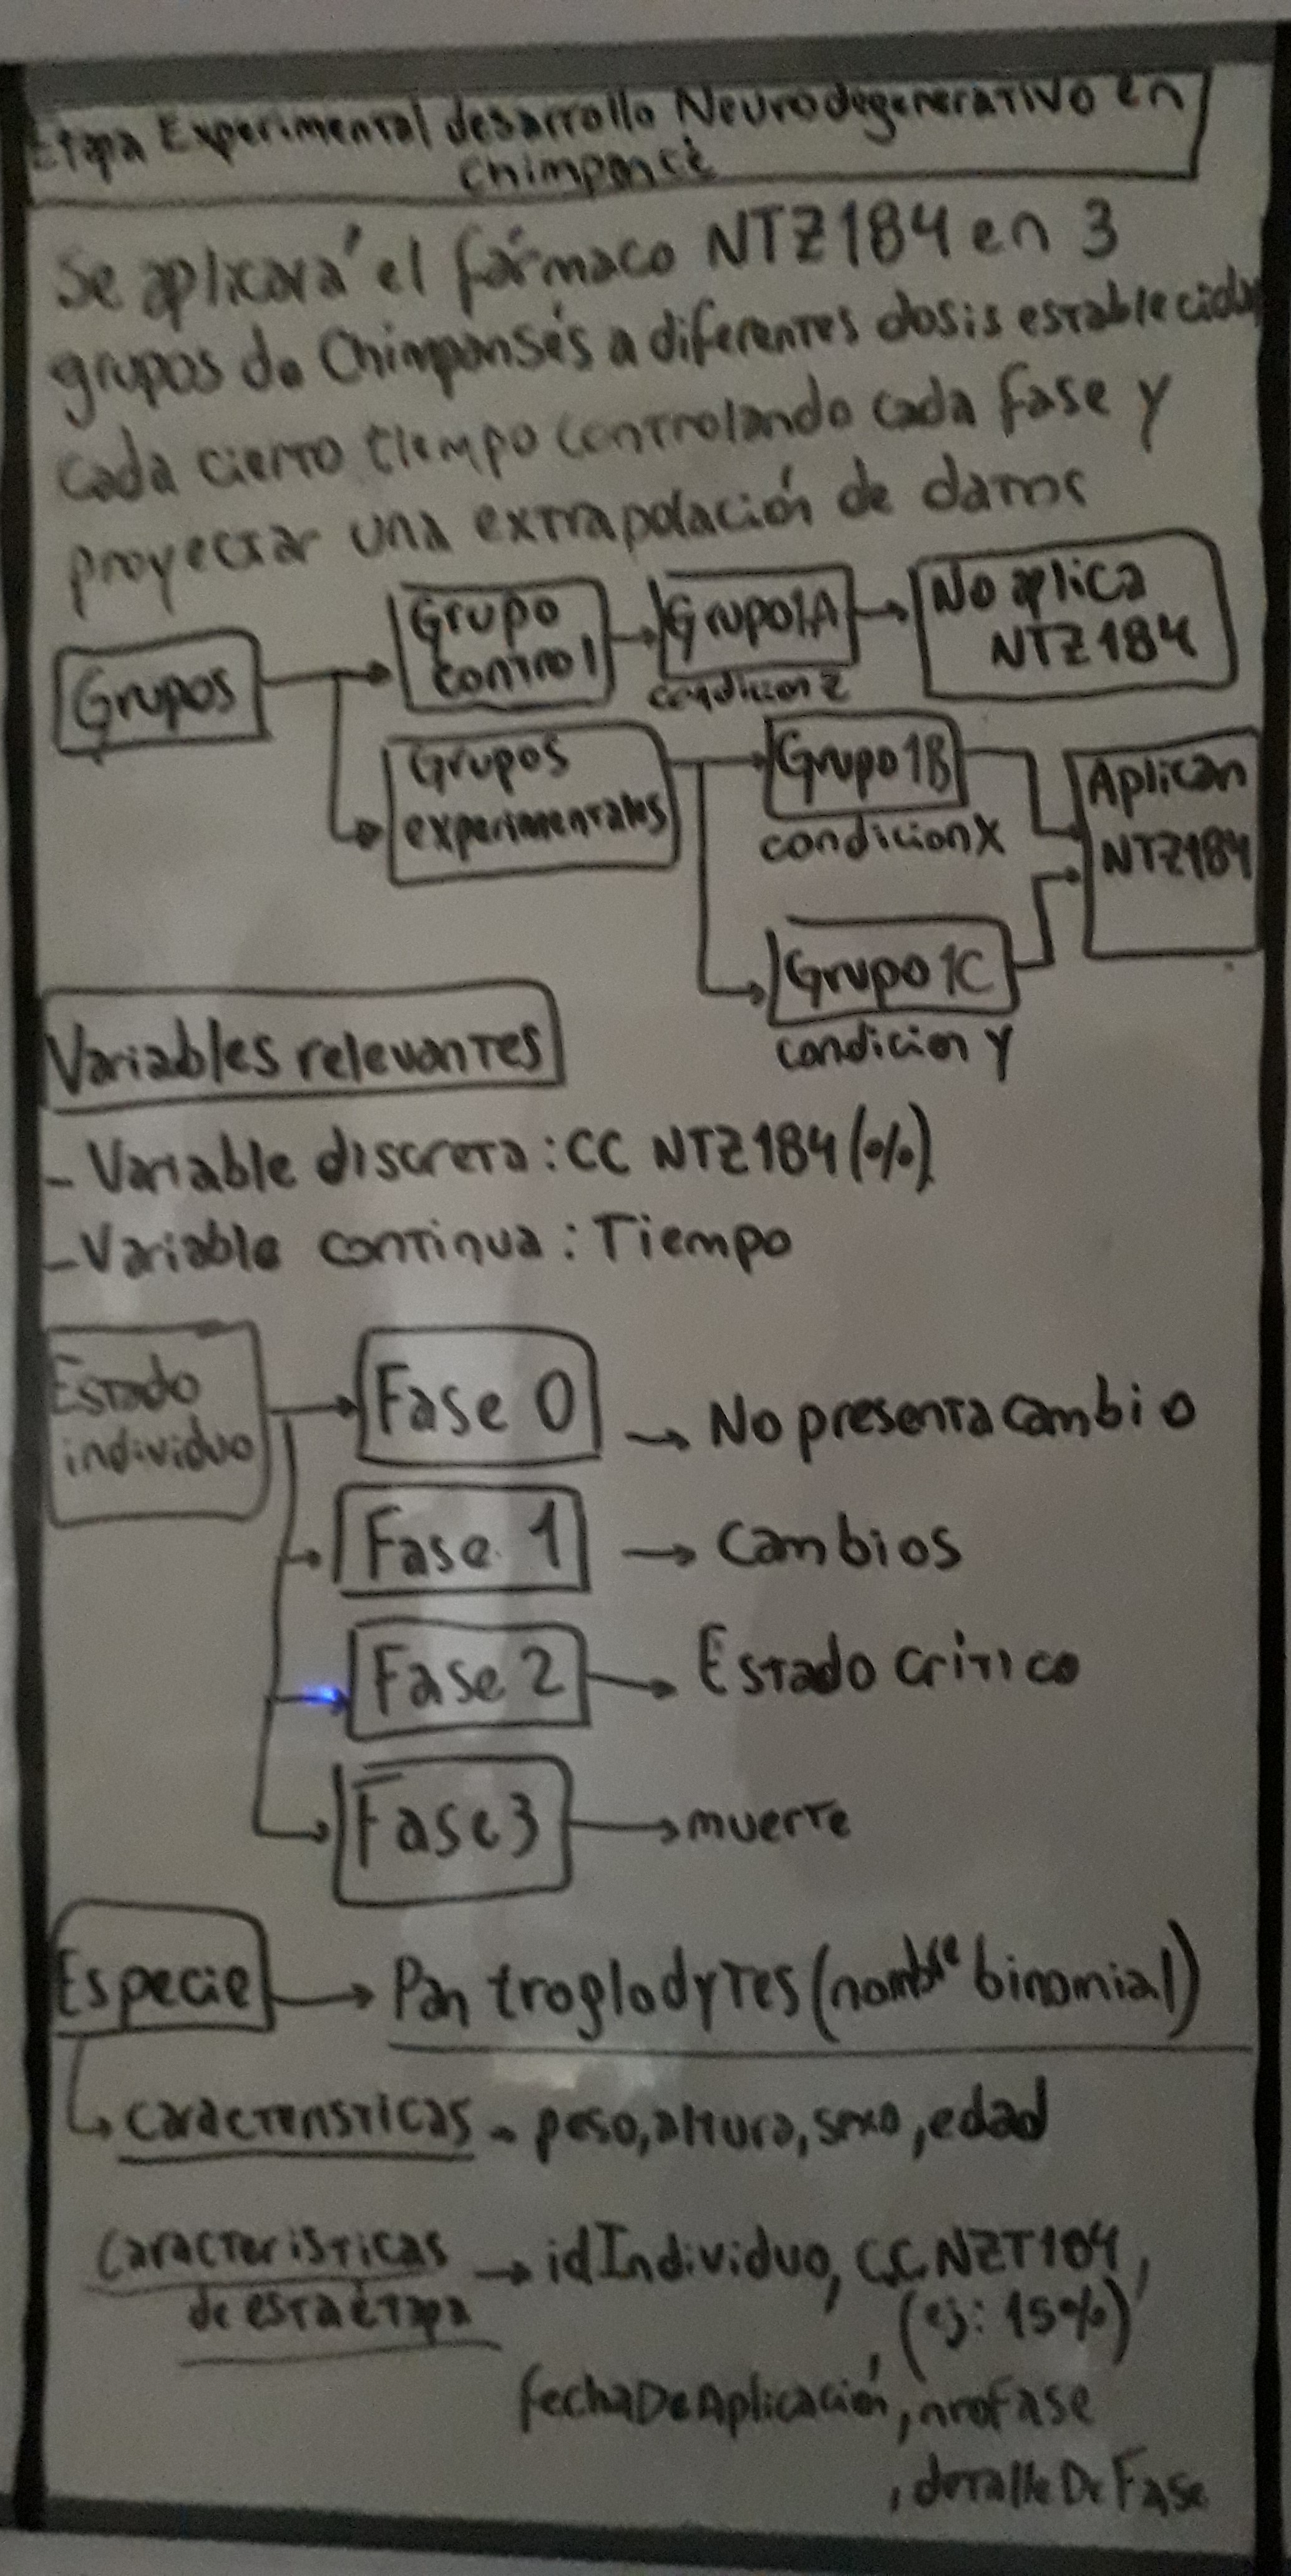 Etapa Experimental desarrollo Neurodegenerativo en
chimpancé
Se aplicará el fármaco NTZ184 en 3
grupos de Chimpansés a diferentes dosis establecidas
cada cierto tiempo controlando cada fase y
proyectar una extrapolación de datos
Grupos
Grupo control
Grupo1A
condicion z
No aplica NTZ184
Grupos experimentales
Grupo 1B
condicion X
Aplican NTZ184
Grupo 1C
condicion y
Variables relevantes
- Variable discreta: CC NTZ184 (%)
- Variable continua: Tiempo
Estado individuo
Fase 0 → No presenta cambio
Fase 1 → Cambios
Fase 2 → Estado critico
Fase 3 → muerte
Especie → Pan troglodytes (nombre binomial)
Caracteristicas - peso, altura, sexo, edad
Caracteristicas → idIndividuo, CC NZT184,
de esta etapa (ej: 15%)
, fechaDeAplicación, nroFase
, detalleDeFase